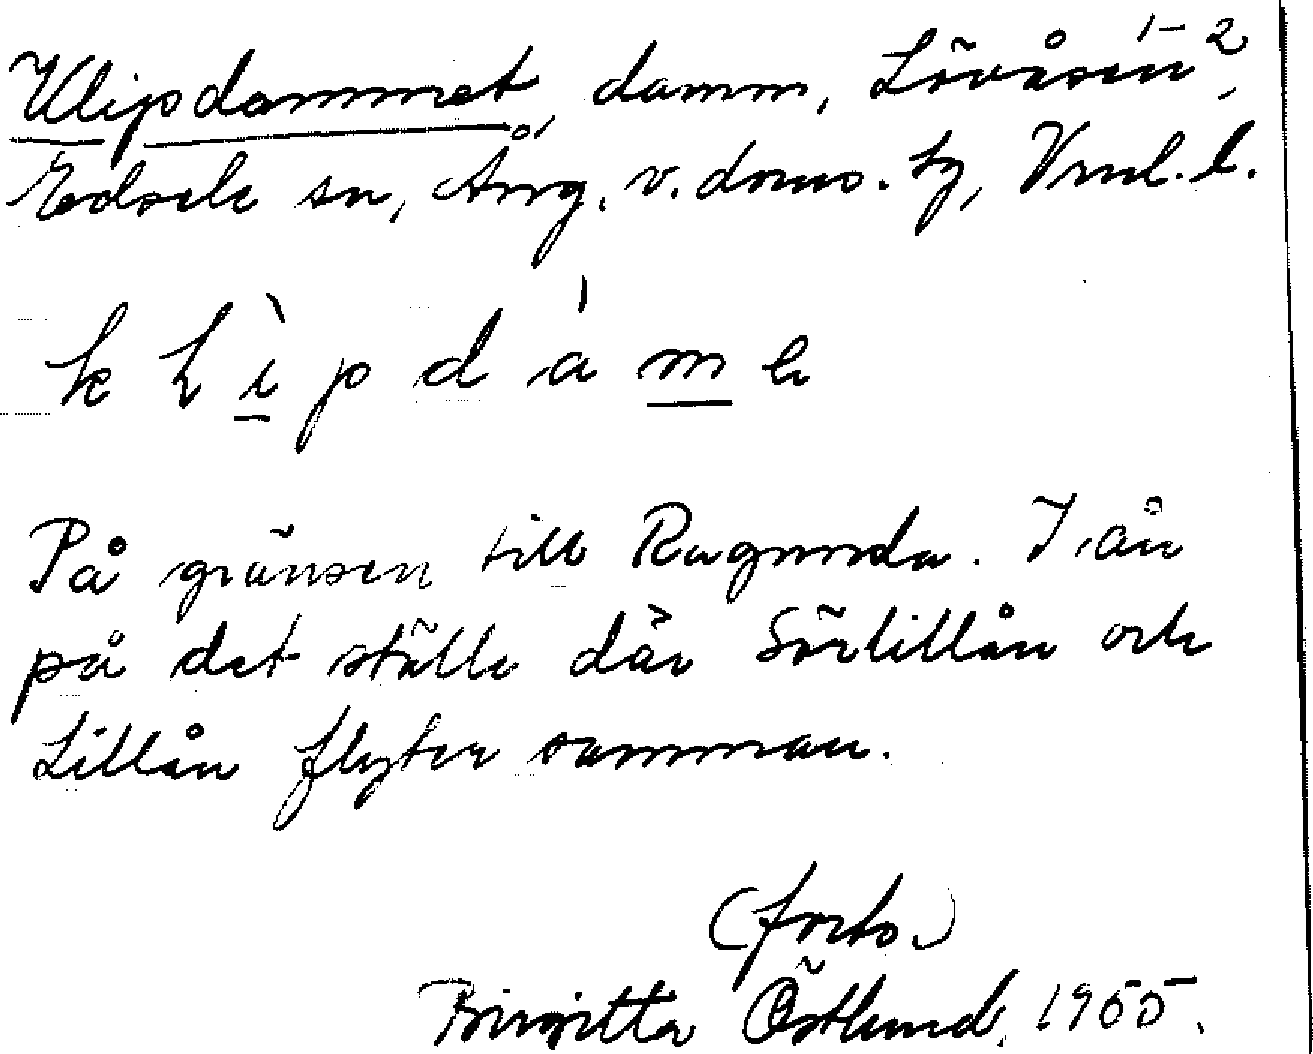 Klipdammet, damm, Lövåsen 1-2,
Edsele sn, Ång. v. doms. tg, Vnl. l.
k l ì p d á m e
På gränsen till Ragunda. I ån
på det ställe där Sörlillån och
Lillån flyter samman.
(forts.)
Birgitta Östlund, 1955.